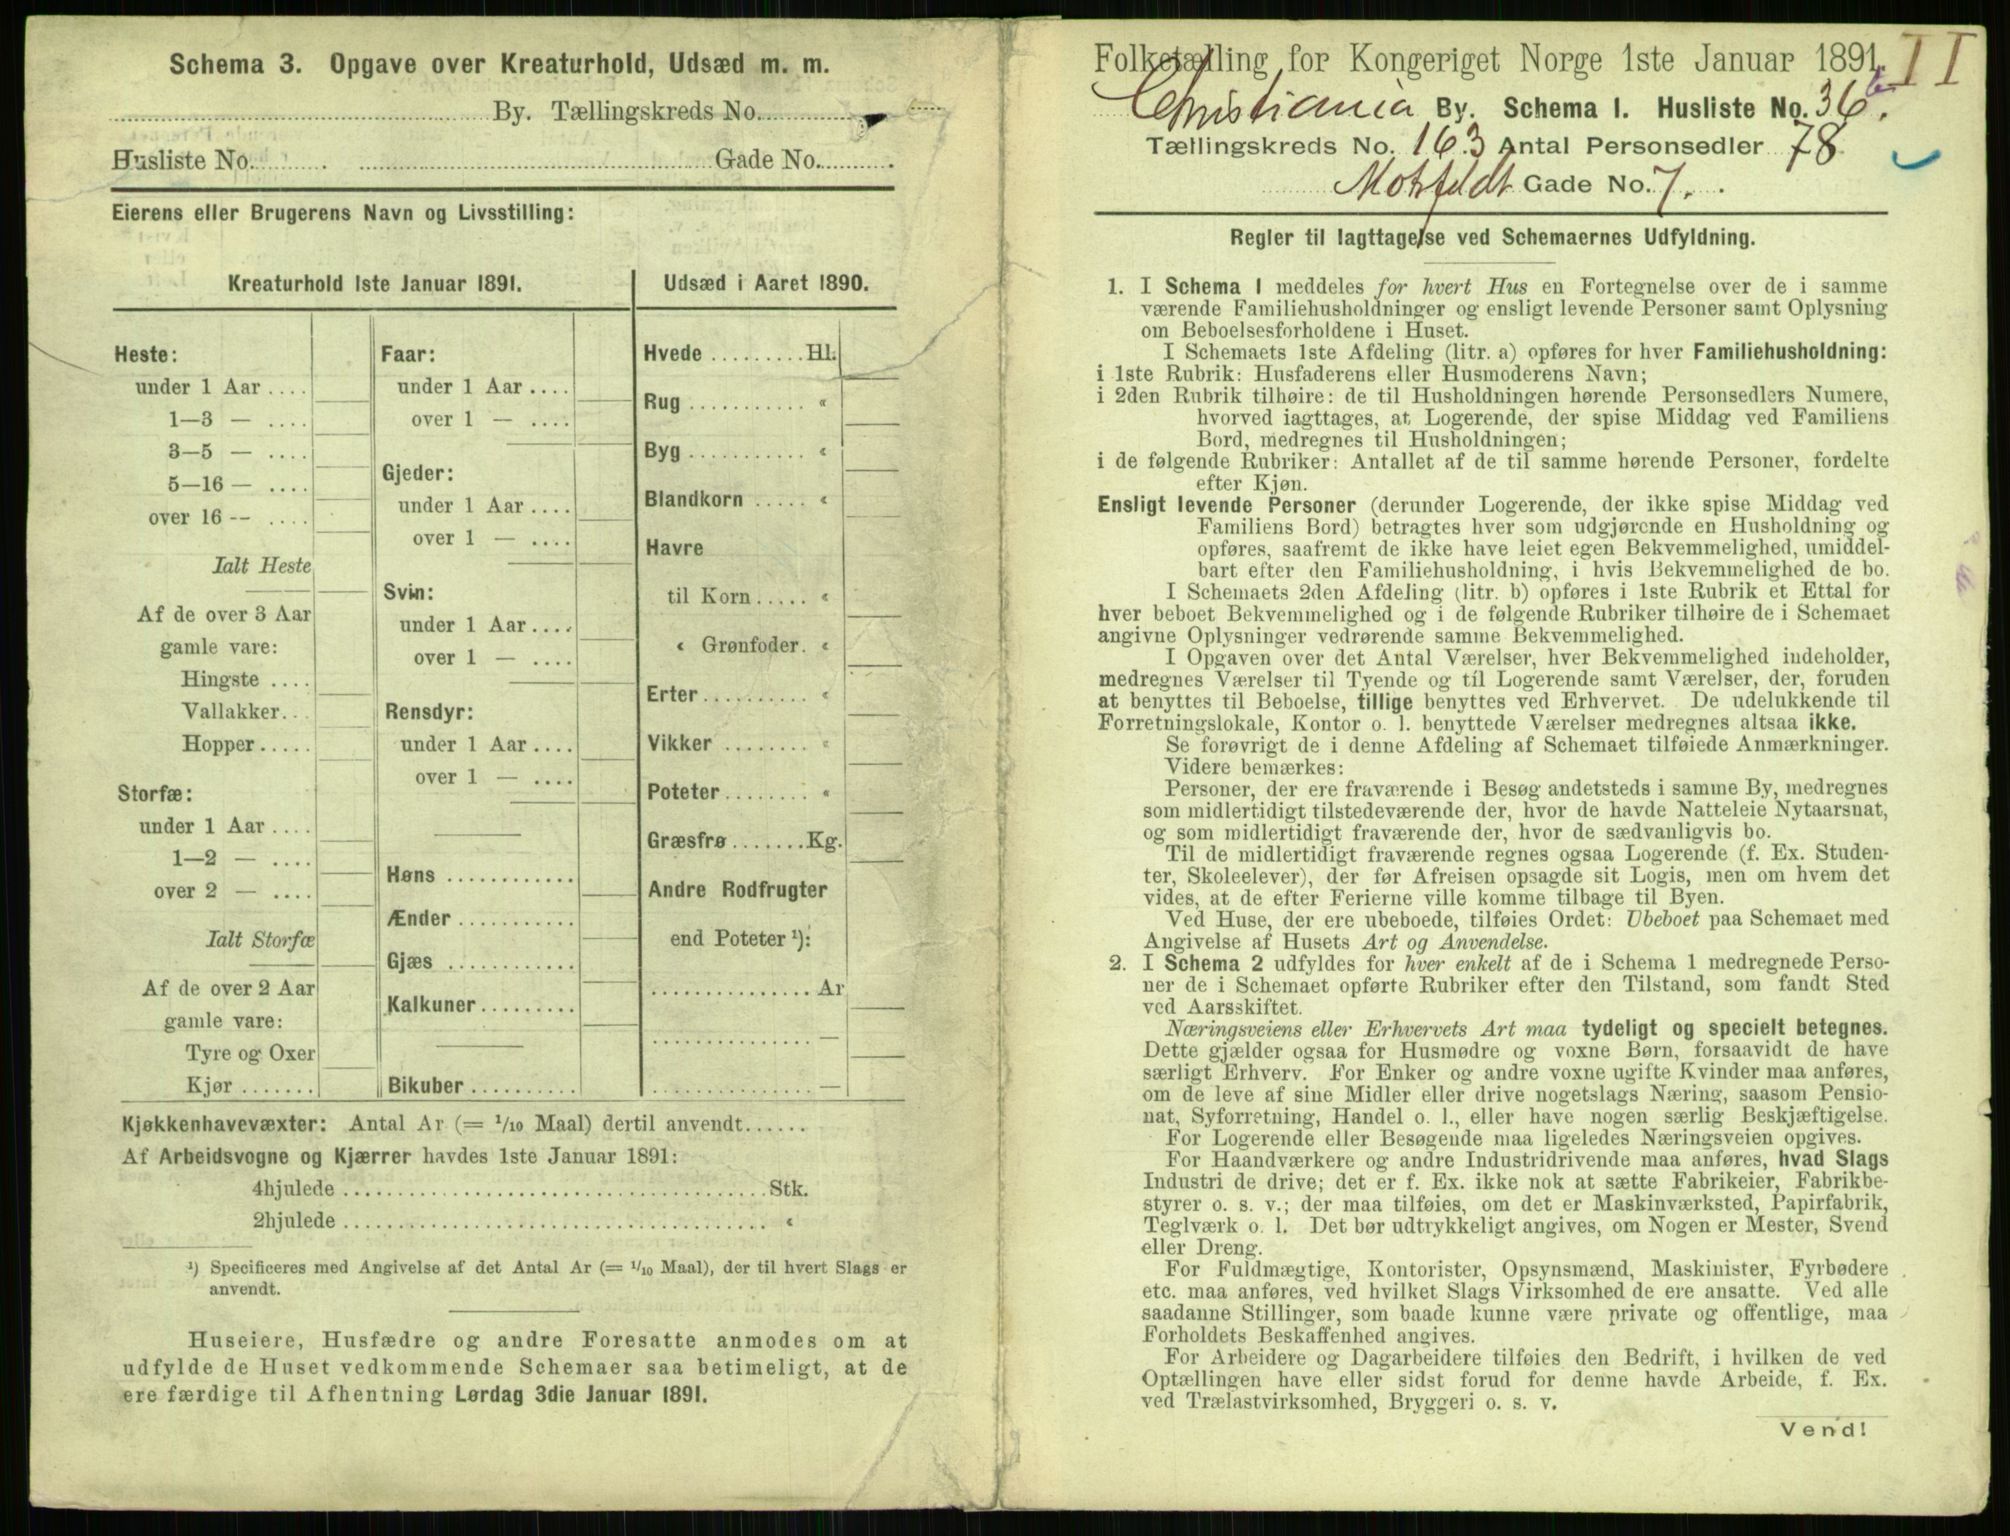 Schema 3. Opgave over Kreaturhold, Udsæd m. m.
By. Tællingskreds No.
Husliste No. Gade No.
Eierens eller Brugerens Navn og Livsstilling:
Kreaturhold 1ste Januar 1891.
Heste:
under 1 Aar ....
1—3 — ....
3—5 — ....
5—16 — ....
over 16 -- ....
Ialt Heste
Af de over 3 Aar
gamle vare:
Hingste ....
Vallakker...
Hopper.....
Storfæ:
under 1 Aar ....
1—2 — ....
over 2 — ....
Ialt Storfæ
Af de over 2 Aar
gamle vare:
Tyre og Oxer
Kjør .......
Faar:
under 1 Aar ....
over 1 — ....
Gjeder:
under 1 Aar ....
over 1 — ....
Svin:
under 1 Aar ....
over 1 — ....
Rensdyr:
under 1 Aar ....
over 1 — ....
Høns ............
Ænder ...........
Gjæs ............
Kalkuner.........
Bikuber ..........
Udsæd i Aaret 1890.
Hvede .........Hl.
Rug ........... «
Byg ........... «
Blandkorn ..... «
Havre
til Korn ..... «
« Grønfoder. «
Erter.......... «
Vikker ........ «
Poteter........ «
Græsfrø .......Kg.
Andre Rodfrugter
end Poteter ¹):
............... Ar
............... —
............... —
Kjøkkenhavevæxter: Antal Ar (= 1/10 Maal) dertil anvendt......
Af Arbeidsvogne og Kjærrer havdes 1ste Januar 1891:
4hjulede .......................................Stk.
2hjulede ....................................... «
¹) Specificeres med Angivelse af det Antal Ar (= 1/10 Maal), der til hvert Slags er
anvendt.
Huseiere, Husfædre og andre Foresatte anmodes om at
udfylde de Huset vedkommende Schemaer saa betimeligt, at de
ere færdige til Afhentning Lørdag 3die Januar 1891.
Folketælling for Kongeriget Norge 1ste Januar 1891. II
Christiania By. Schema I. Husliste No. 36 b.
Tællingskreds No. 163 Antal Personsedler 78
Motzfeldt Gade No. 7.
Regler til Iagttagelse ved Schemaernes Udfyldning.
1. I Schema I meddeles for hvert Hus en Fortegnelse over de i samme
værende Familiehusholdninger og ensligt levende Personer samt Oplysning
om Beboelsesforholdene i Huset.
I Schemaets 1ste Afdeling (litr. a) opføres for hver Familiehusholdning:
i 1ste Rubrik: Husfaderens eller Husmoderens Navn;
i 2den Rubrik tilhøire: de til Husholdningen hørende Personsedlers Numere,
hvorved iagttages, at Logerende, der spise Middag ved Familiens
Bord, medregnes til Husholdningen;
i de følgende Rubriker: Antallet af de til samme hørende Personer, fordelte
efter Kjøn.
Ensligt levende Personer (derunder Logerende, der ikke spise Middag ved
Familiens Bord) betragtes hver som udgjørende en Husholdning og
opføres, saafremt de ikke have leiet egen Bekvemmelighed, umiddel-
bart efter den Familiehusholdning, i hvis Bekvemmelighed de bo.
I Schemaets 2den Afdeling (litr. b) opføres i 1ste Rubrik et Ettal for
hver beboet Bekvemmelighed og i de følgende Rubriker tilhøire de i Schemaet
angivne Oplysninger vedrørende samme Bekvemmelighed.
I Opgaven over det Antal Værelser, hver Bekvemmelighed indeholder,
medregnes Værelser til Tyende og til Logerende samt Værelser, der, foruden
at benyttes til Beboelse, tillige benyttes ved Erhvervet. De udelukkende til
Forretningslokale, Kontor o. l. benyttede Værelser medregnes altsaa ikke.
Se forøvrigt de i denne Afdeling af Schemaet tilføiede Anmærkninger.
Videre bemærkes:
Personer, der ere fraværende i Besøg andetsteds i samme By, medregnes
som midlertidigt tilstedeværende der, hvor de havde Natteleie Nytaarsnat,
og som midlertidigt fraværende der, hvor de sædvanligvis bo.
Til de midlertidigt fraværende regnes ogsaa Logerende (f. Ex. Studen-
ter, Skoleelever), der før Afreisen opsagde sit Logis, men om hvem det
vides, at de efter Ferierne ville komme tilbage til Byen.
Ved Huse, der ere ubeboede, tilføies Ordet: Ubeboet paa Schemaet med
Angivelse af Husets Art og Anvendelse.
2. I Schema 2 udfyldes for hver enkelt af de i Schema 1 medregnede Perso-
ner de i Schemaet opførte Rubriker efter den Tilstand, som fandt Sted
ved Aarsskiftet.
Næringsveiens eller Erhvervets Art maa tydeligt og specielt betegnes.
Dette gjælder ogsaa for Husmødre og voxne Børn, forsaavidt de have
særligt Erhverv. For Enker og andre voxne ugifte Kvinder maa anføres,
om de leve af sine Midler eller drive nogetslags Næring, saasom Pensio-
nat, Syforretning, Handel o. l., eller have nogen særlig Beskjæftigelse.
For Logerende eller Besøgende maa ligeledes Næringsveien opgives.
For Haandværkere og andre Industridrivende maa anføres, hvad Slags
Industri de drive; det er f. Ex. ikke nok at sætte Fabrikeier, Fabrikbe-
styrer o. s. v.; der maa tilføies, om det er Maskinværksted, Papirfabrik,
Teglværk o. l. Det bør udtrykkeligt angives, om Nogen er Mester, Svend
eller Dreng.
For Fuldmægtige, Kontorister, Opsynsmænd, Maskinister, Fyrbødere
etc. maa anføres, ved hvilket Slags Virksomhed de ere ansatte. Ved alle
saadanne Stillinger, som baade kunne være private og offentlige, maa
Forholdets Beskaffenhed angives.
For Arbeidere og Dagarbeidere tilføies den Bedrift, i hvilken de ved
Optællingen have eller sidst forud for denne havde Arbeide, f. Ex.
ved Trælastvirksomhed, Bryggeri o. s. v.
Vend!